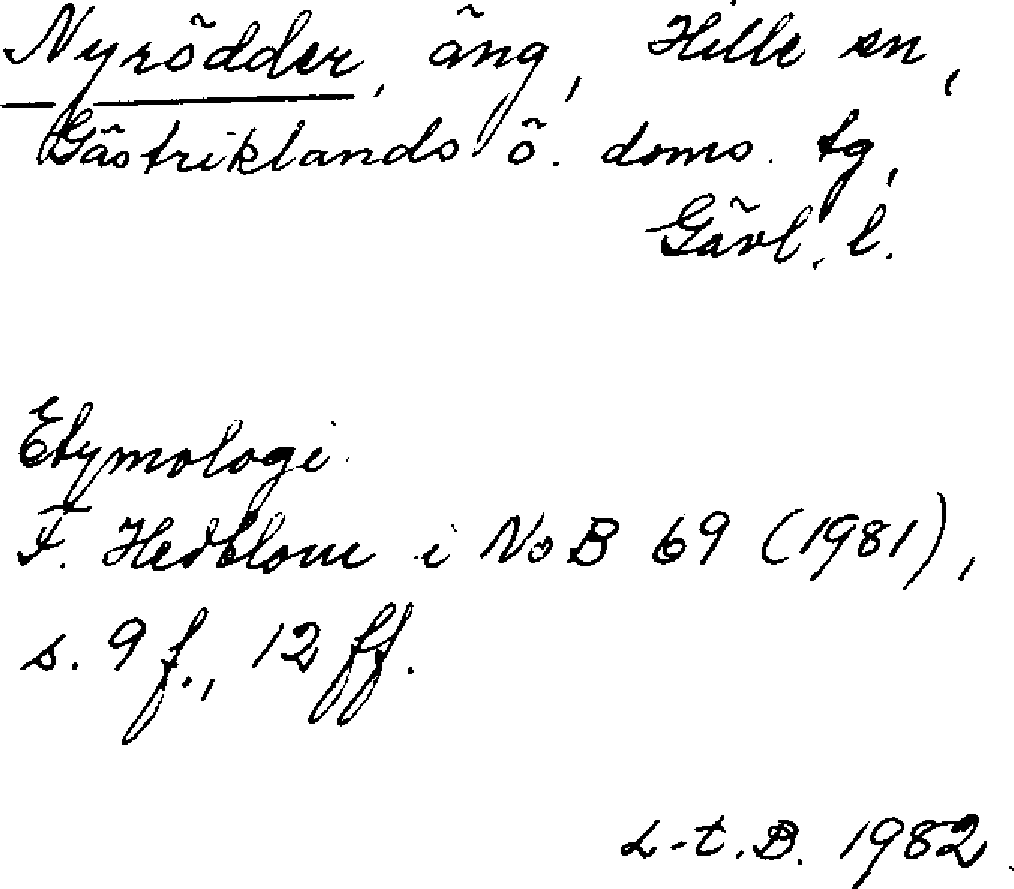 Nyrödder, äng, Hille sn,
Gästriklands ö. doms. tg,
Gävl. l.
Etymologi.
F. Hedblom i NoB 69 (1981),
s. 9 f., 12 ff.
L-t.B. 1982.